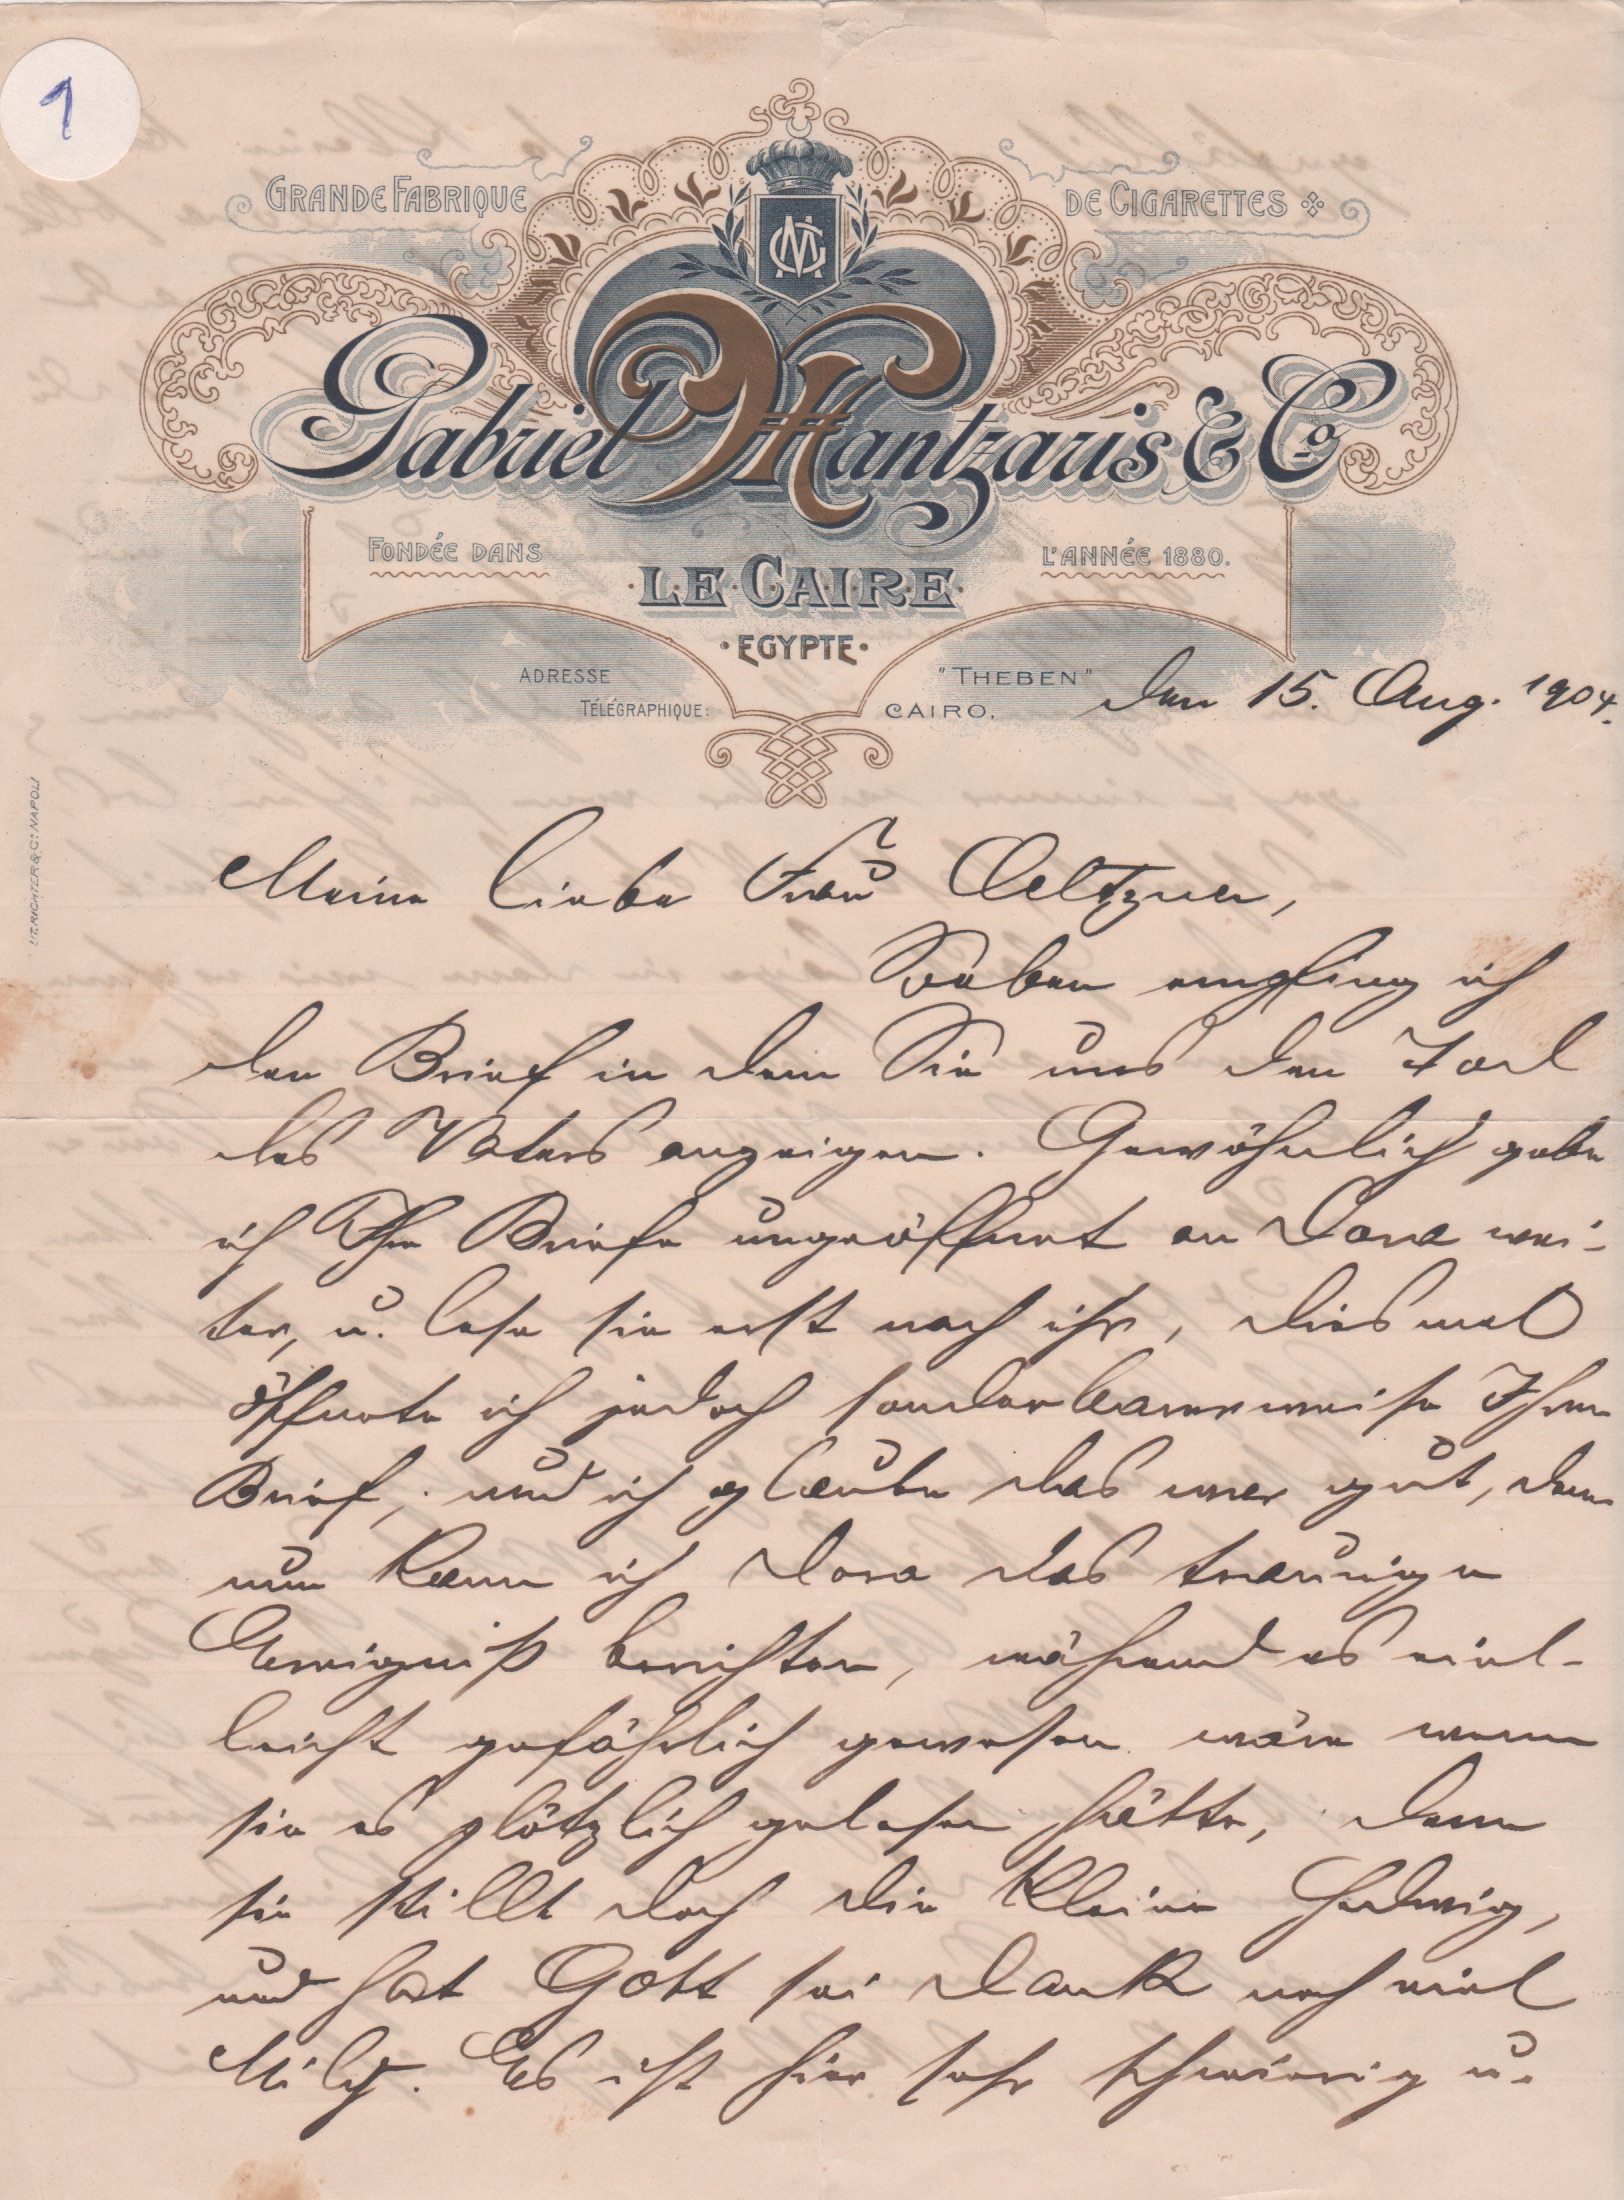 1
GRANDE FABRIQUE DE CIGARETTES
GM
Gabriel Mantzaris & Co
FONDÉE DANS L'ANNÉE 1880.
LE CAIRE
EGYPTE
ADRESSE "THEBEN"
TÉLÉGRAPHIQUE: CAIRO.
LIT. RICHTER & Co. NAPOLI
den 15. Aug. 1904.
Meine liebe Frau Oeltzner,
Soeben empfing ich
den Brief in dem Sie uns den Tod
des Vaters anzeigen. Gewöhnlich gebe
ich Ihre Briefe ungeöffnet an Dora wei-
ter, u. lese sie erst nach ihr, diesmal
öffnete ich jedoch sonderbarerweise Ihren
Brief, und ich glaube das war gut, denn
nun kann ich Dora das traurige
Ereigniß berichten, während es viel-
leicht gefährlich gewesen wäre wenn
sie es plötzlich gelesen hätte, denn
sie stillt doch die Kleine Hedwig,
und hat Gott sei Dank noch viel
Milch. Es ist hier sehr schwierig u.